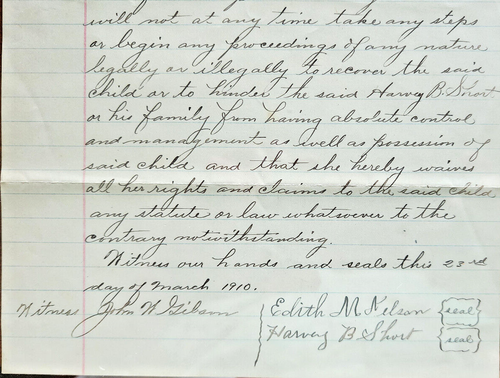 will not at any time take any steps
or begin any proceedings of any nature
legally or illegally to recover the said
child or to hinder the said Harvey B. Short
or his family from having absolute control
and management as well as possession of
said child and that she hereby waives
all her rights and claims to the said child
any statute or law whatsoever to the
contrary notwithstanding.
Witness our hands and seals this 23rd
day of March 1910.
Witness John W Gibson
Edith M Nelson {seal}
Harvey B. Short {seal}